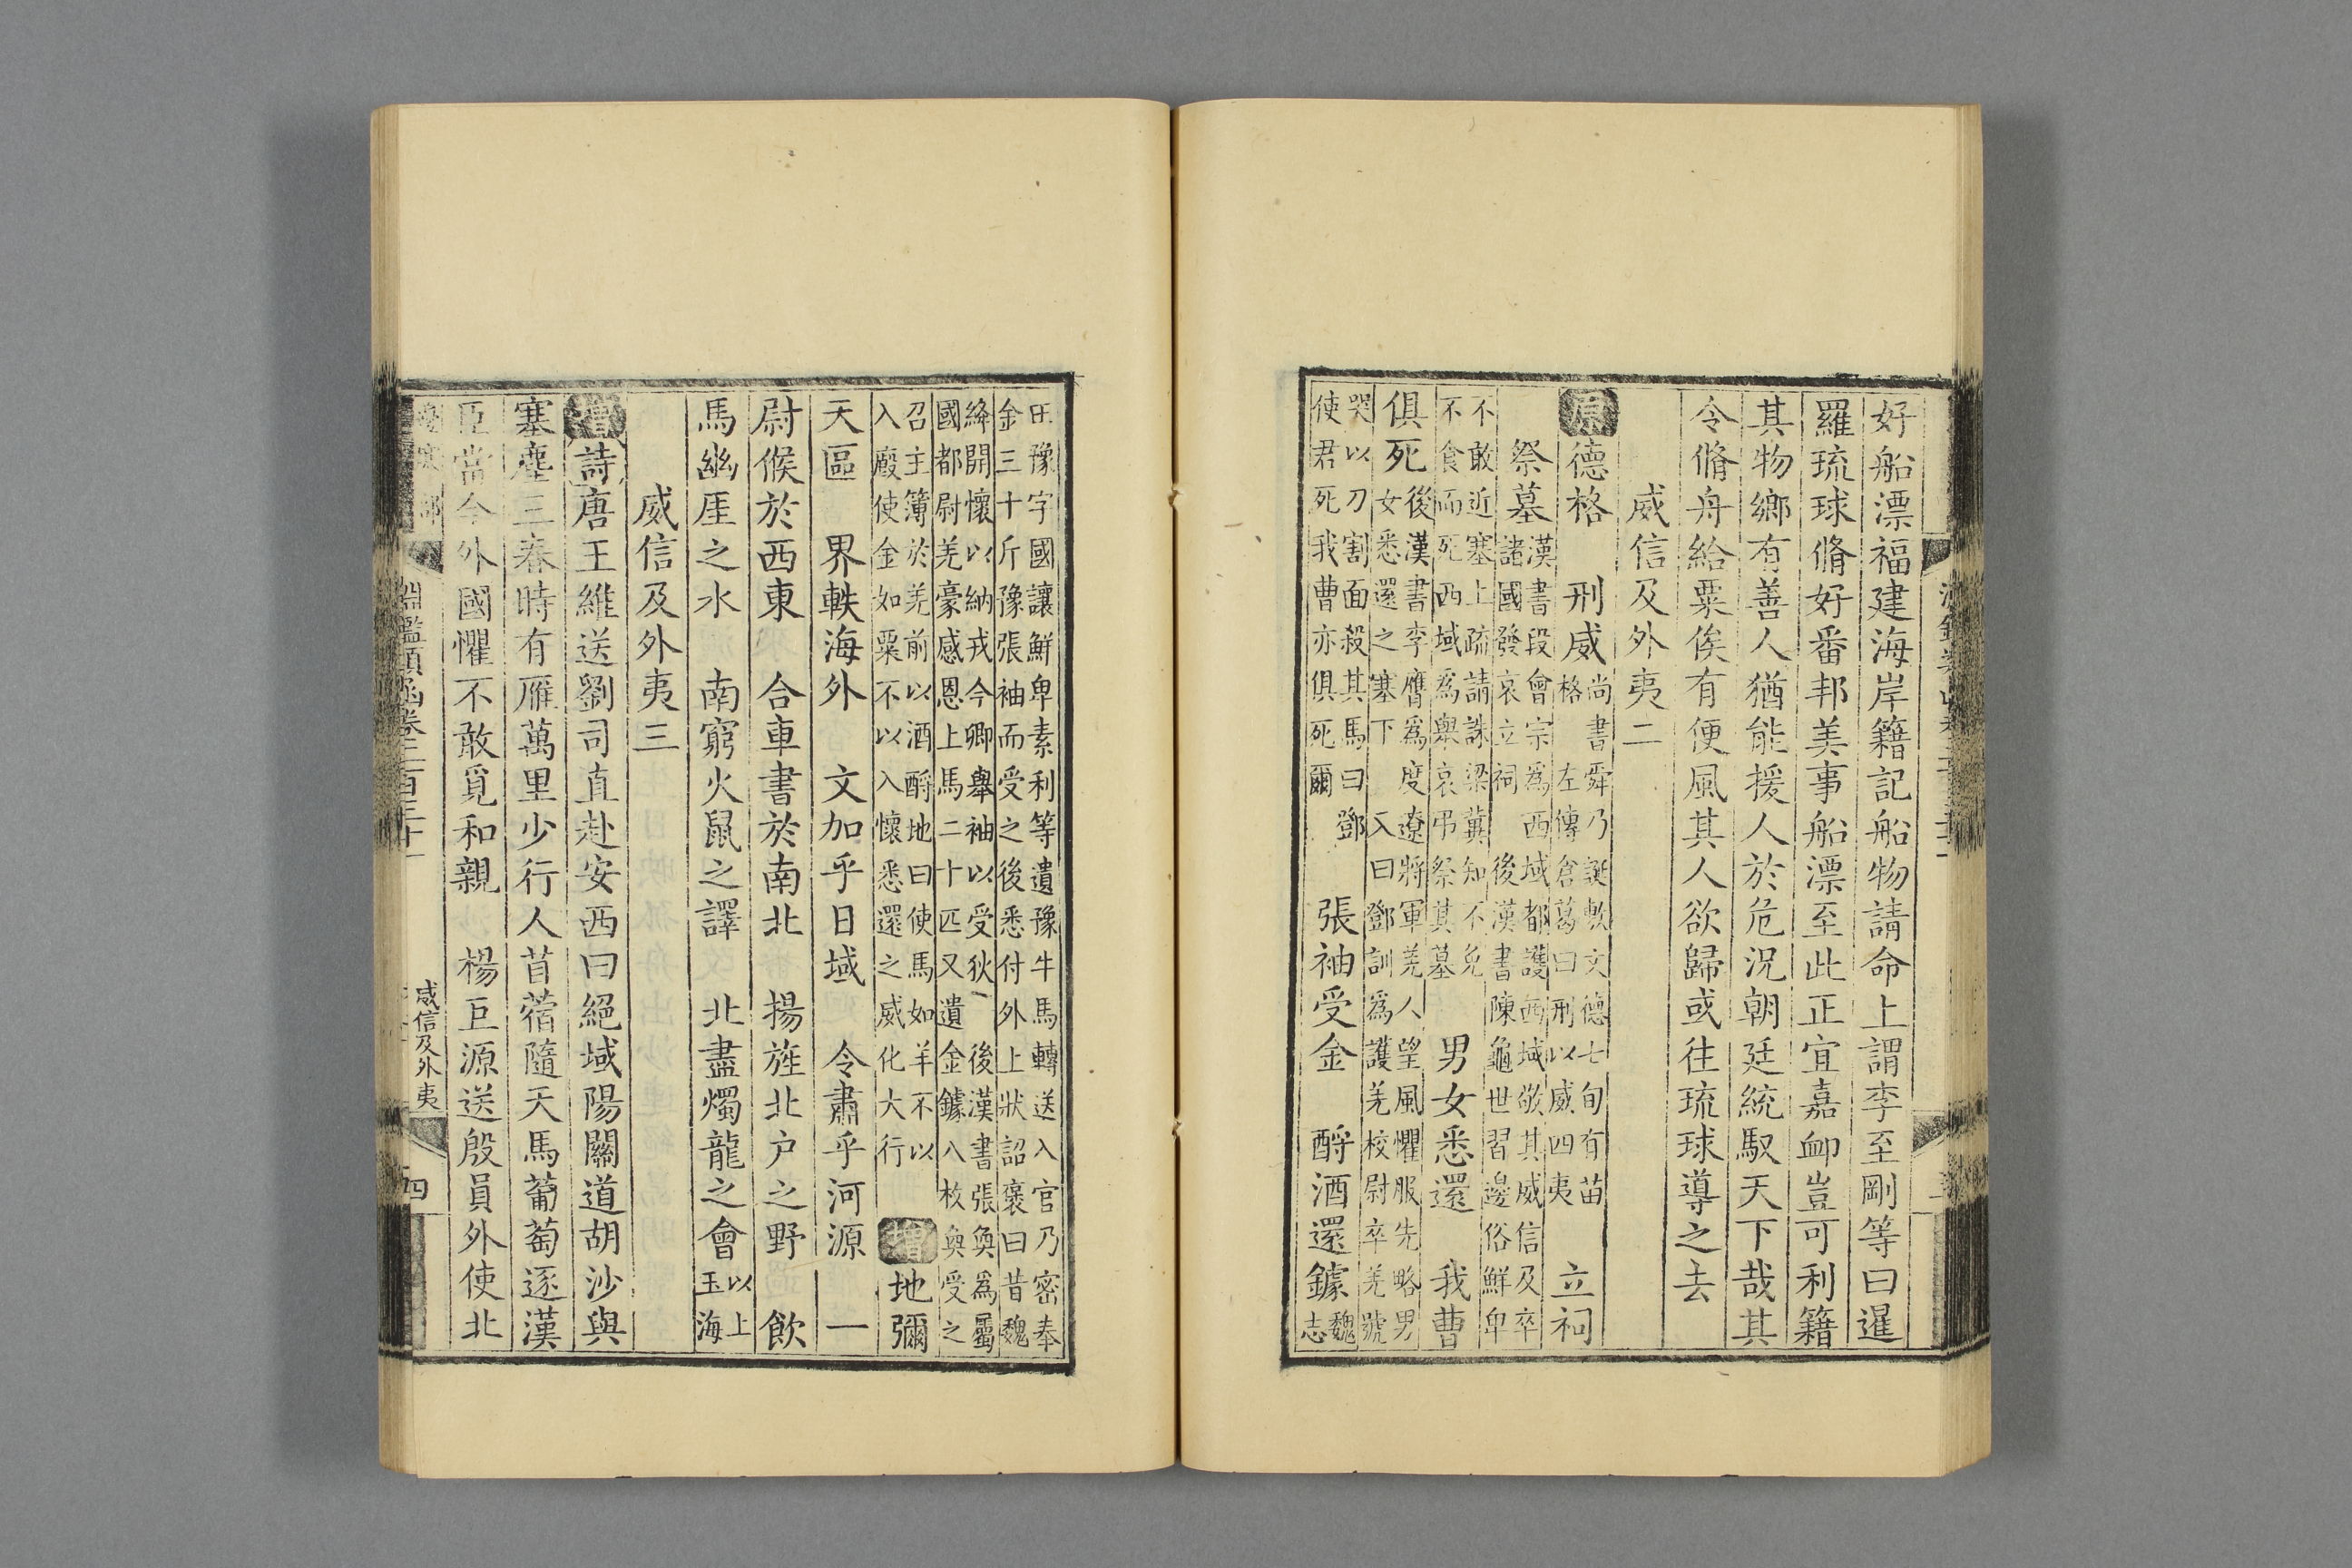 好船漂福建海岸籍記船物請命上謂李至剛等曰暹
羅琉球脩好番邦美事船漂至此正宜嘉卹豈可利籍
其物鄉有善人猶能援人於危況朝廷統馭天下哉其
令脩舟給粟俟有便風其人欲歸或往琉球導之去
威信及外夷二
原德格 刑威尚書舜乃誕敷文德七旬有苗
格 左傳倉葛曰刑以威四夷 立祠
祭墓漢書段會宗為西域都護西域敬其威信及卒
諸國發哀立祠 後漢書陳龜世習邊俗鮮卑
不敢近塞上疏請誅梁冀知不免
不食而死西域為舉哀弔祭其墓 男女悉還 我曹
俱死後漢書李膺為度遼將軍羌人望風懼服先略男
女悉還之塞下 又曰鄧訓為護羌校尉卒羌號
哭以刀割面殺其馬曰鄧
使君死我曹亦俱死爾 張袖受金 酹酒還鐻魏
志
田豫字國讓鮮卑素利等遺豫牛馬轉送入官乃密奉
金三十斤豫張袖而受之後悉付外上狀詔襃曰昔魏
絳開懷以納戎今卿舉袖以受狄 後漢書張奐為屬
國都尉羌豪感恩上馬二十匹又遺金鐻八枚奐受之
召主簿於羌前以酒酹地曰使馬如羊不以
入廄使金如粟不以入懷悉還之威化大行 增地彌
天區 界軼海外 文加乎日域 令肅乎河源 一
尉候於西東 合車書於南北 揚旌北户之野 飲
馬幽厓之水 南窮火鼠之譯 北盡燭龍之會以上
玉海
威信及外夷三
增詩唐王維送劉司直赴安西曰絕域陽關道胡沙與
塞塵三春時有雁萬里少行人苜蓿隨天馬葡萄逐漢
臣當令外國懼不敢覓和親 楊巨源送殷員外使北
淵鑑類函卷二百三十一
威信及外夷
四